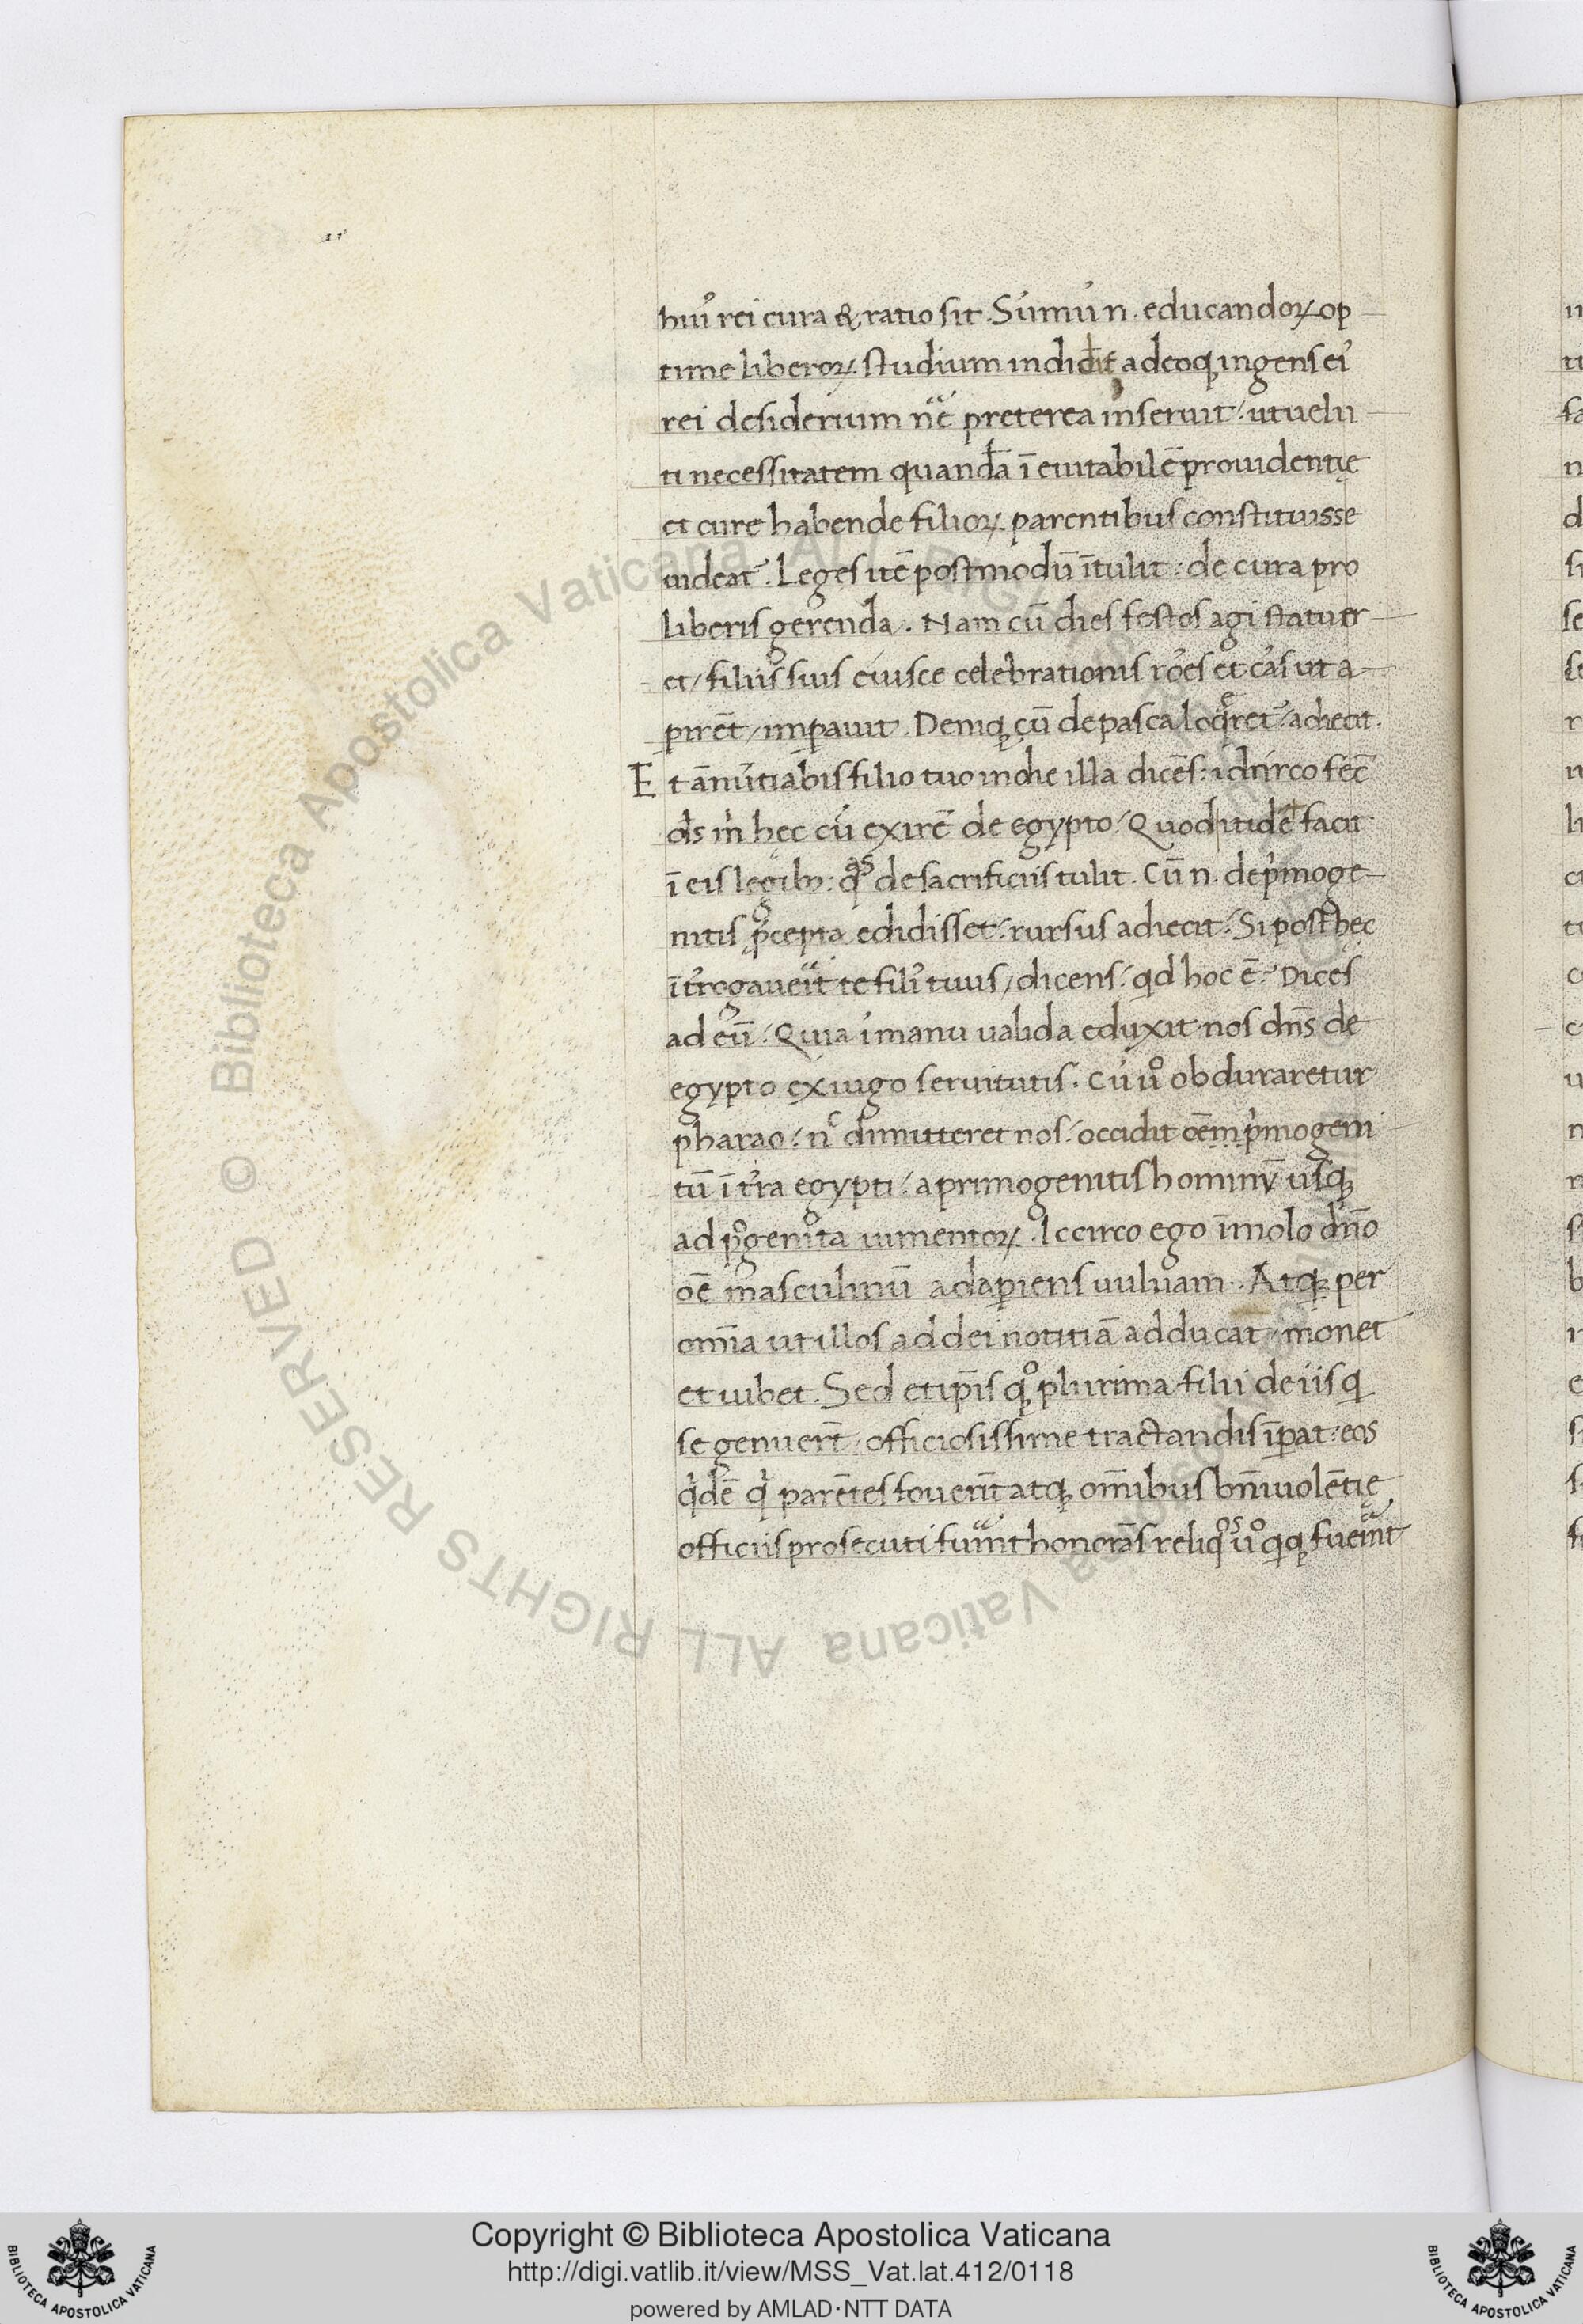 huiꝰ rei cura & ratio sit. Sūmū n. educandoꝝ op
time liberoꝝ studium indidit adeoqꝫ ingens eiꝰ
rei desiderium preterea inseruit: ut uelu
ti necessitatem quandā ī euitabilē prouidentię
et cure habende filioꝝ parentibus constituisse
uideat᷑. Leges itē postmodū ītulit: de cura pro
liberis gerenda. Nam cū dies festos agi statuer
et/ filiis suis eiusce celebrationis rōēs et cās ut a
pirēt/ imꝑauit. Deniqꝫ cū de pasca loqret᷑: adiecit.
Et ānūtiabis filio tuo in die illa dicēs: idcirco fec̄
ds m̄ hec cū exirē de egypto/ Quod itidē facit
ī eis legibꝫ: qᵃˢ de sacrificiis tulit. Cū n. de pͥmoge
nitis p̄cepta edidisset: rursus adiecit: Si post hec
ītꝰrogaueit te filiꝰ tuus, dicens: qd hoc ē: Dices
ad eū: Quia ī manu ualida eduxit nos dn̄s de
egypto ex iugo seruitutis. Cū uͦ obduraretur
pharao: nᶜ dimitteret nos: occidit oēm pͥmogeni
tū ī tꝰra egypti: a primogenitis hominū usqꝫ
ad pͥgenita iumentoꝝ. Iccirco ego īmolo dn̄o
oē masculinū adapiens uuluam. Atqꝫ per
om̄ia ut illos ad dei notitiā adducat/ monet
et iubet. Sed et ip̄is qꝫͦ plurima filii de iis q
se genuer̄t/ officiosissime tractandis īꝑat: eos
qͥdē qͥ parētes fouer̄t atqꝫ om̄ibus bn̄iuolētię
officiis prosecuti fuint honorās reliqᵒˢ uͦ qiqꝫ fueint
Copyright © Biblioteca Apostolica Vaticana
http://digi.vatlib.it/view/MSS_Vat.lat.412/0118
powered by AMLAD·NTT DATA
BIBLIOTECA APOSTOLICA VATICANA
BIBLIOTECA APOSTOLICA VATICANA
© Biblioteca Apostolica Vaticana ALL RIGHTS RESERVED